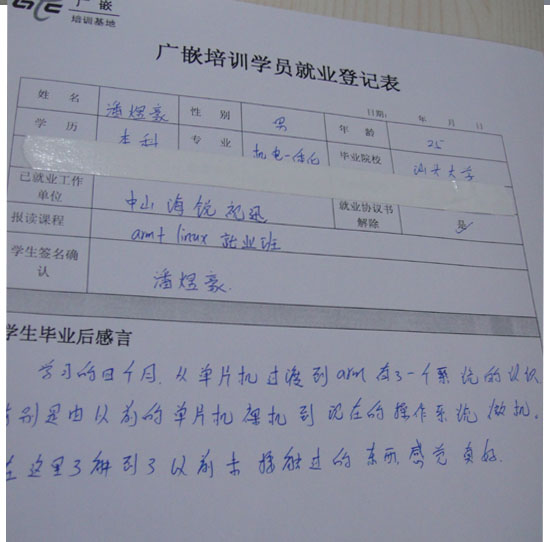 GCE 广嵌
培训基地
广嵌培训学员就业登记表
日期: 年 月 日
姓 名 潘煜豪 性 别 男 年 龄 25
学 历 本科 专 业 机电一体化 毕业院校 汕头大学
已就业工作单位 中山海锐 就业协议书解除 是
报读课程 arm+linux 就业班
学生签名确认 潘煜豪.
学生毕业后感言
学习的四个月,从单片机过渡到arm有了一个系统的认识
别是由以前的单片机裸机到现在的操作系统做机.
在这里了解到了以前未接触过的东西,感觉真好.